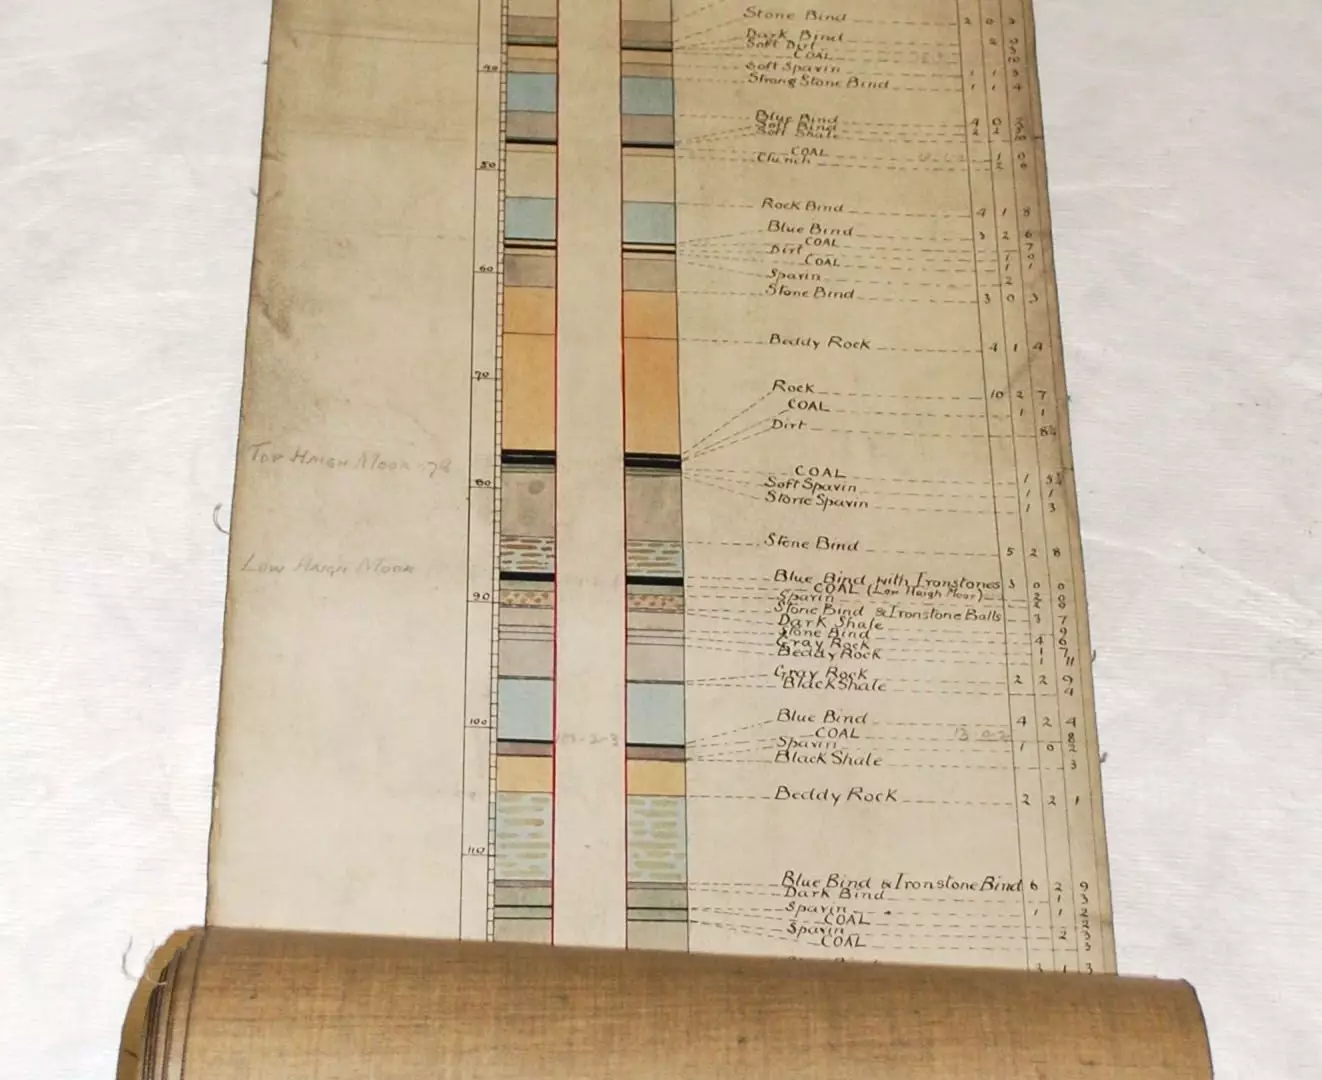 Stone Bind 2 0 3
Dark Bind
Soft Dirt
COAL
40
Soft Spavin 1 1 3
Strong Stone Bind 1 1 4
Blue Bind 4 0
Soft Bind
Soft Shale
COAL
Clunch
50
Rock Bind 4 1 8
Blue Bind 3 2 6
COAL 7
Dirt
COAL 1 1
60
Spavin 2
Stone Bind 3 0 3
Beddy Rock 4 1 4
70
Rock 10 2 7
COAL 1 1
Dirt
TOP HAIGH MOOR 78
COAL
80
Soft Spavin 1 1
Stone Spavin 1 3
Stone Bind 5 2 8
LOW HAIGH MOOR
Blue Bind with Ironstones 3 0 0
COAL (Low Haigh Moor) 2 0
90
Spavin
Stone Bind & Ironstone Balls 3 7
Dark Shale 9
Stone Bind 4 6
Gray Rock 1 7
Beddy Rock 1 11
Gray Rock 2 2 9
Black Shale 4
Blue Bind 4 2 4
100
COAL 13 0 2 8
Spavin 1 0 2
Black Shale 3
Beddy Rock 2 2 1
110
Blue Bind & Ironstone Bind 6 2 9
Dark Bind 1 3
Spavin 1 1 2
COAL 2
Spavin 2 3
COAL 3
3 1 3